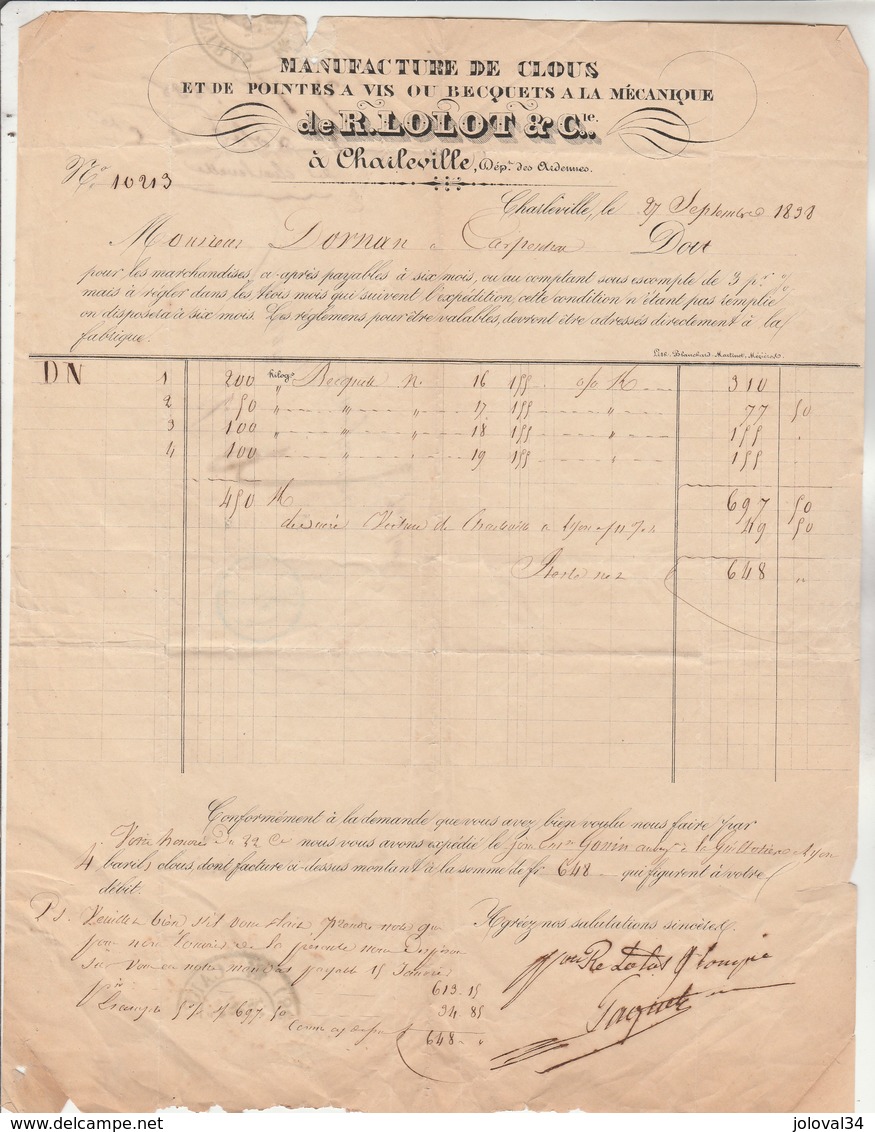 MANUFACTURE DE CLOUS
ET DE POINTES A VIS OU BECQUETS A LA MÉCANIQUE
de R. LOLOT & C.ie
à Charleville, Dép.t des Ardennes.
N.o 10213
Charleville, le 27 Septembre 1838
Monsieur Dornan à Carpentras Doit
pour les marchandises, ci-après payables à six mois, ou au comptant sous escompte de 3 p.r %
mais à régler dans les trois mois qui suivent l'expédition, cette condition n'étant pas remplie
on disposera à six mois. Les réglemens pour être valables, devront être adressés directement à la
fabrique.
Lith. Blanchard-Martinet, Mézières.
DN 1 200 Kilogs Becquets N. 16 155 % K 310
2 50 " " 17 155 " 77 50
3 100 " " 18 155 " 155
4 100 " " 19 155 " 155
450 K 697 50
Voiture de Charleville à Lyon 49 50
Reste net 648 "
Conformément à la demande que vous avez bien voulu nous faire par
Votre honorée du 22 Ct nous vous avons expédié le Gonin à la Guillotière Lyon
4 barils clous, dont facture ci-dessus montant à la somme de fr. 648 qui figurent à votre
débit.
Agréez nos salutations sincères.
Ps. Veuillez bien s'il vous plait prendre note que
pour la présente nous
sur vous en notre mandat payable 15 Janvier
613.15
Escompte 5% s/ 697.50 34.85
648 "
pour R Lolot & Compie
Jacquet
www.delcampe.net
joloval34